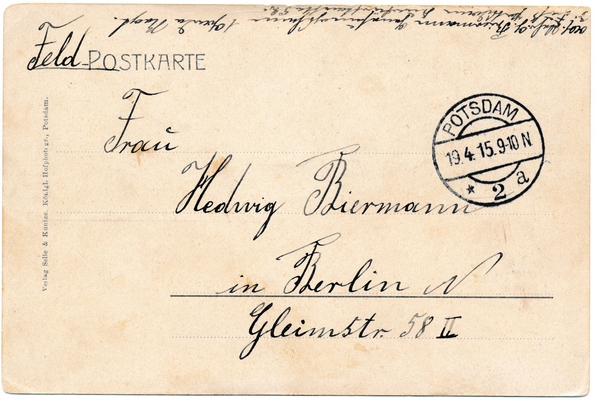 Feld POSTKARTE
Frau
Hedwig Biermann
in Berlin N
Gleimstr. 58 II
POTSDAM
19.4.15.9-10 N
* 2 a
Verlag Selle & Kuntze, Königl. Hofphotogr., Potsdam.